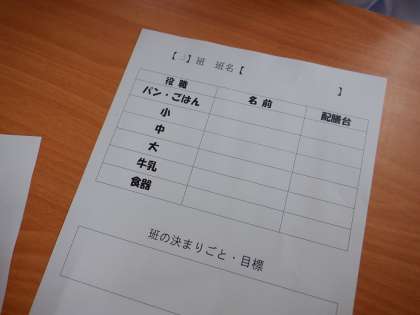 【三】班 班名【 】
役職 名前 配膳台
パン・ごはん
小
中
大
牛乳
食器
班の決まりごと・目標